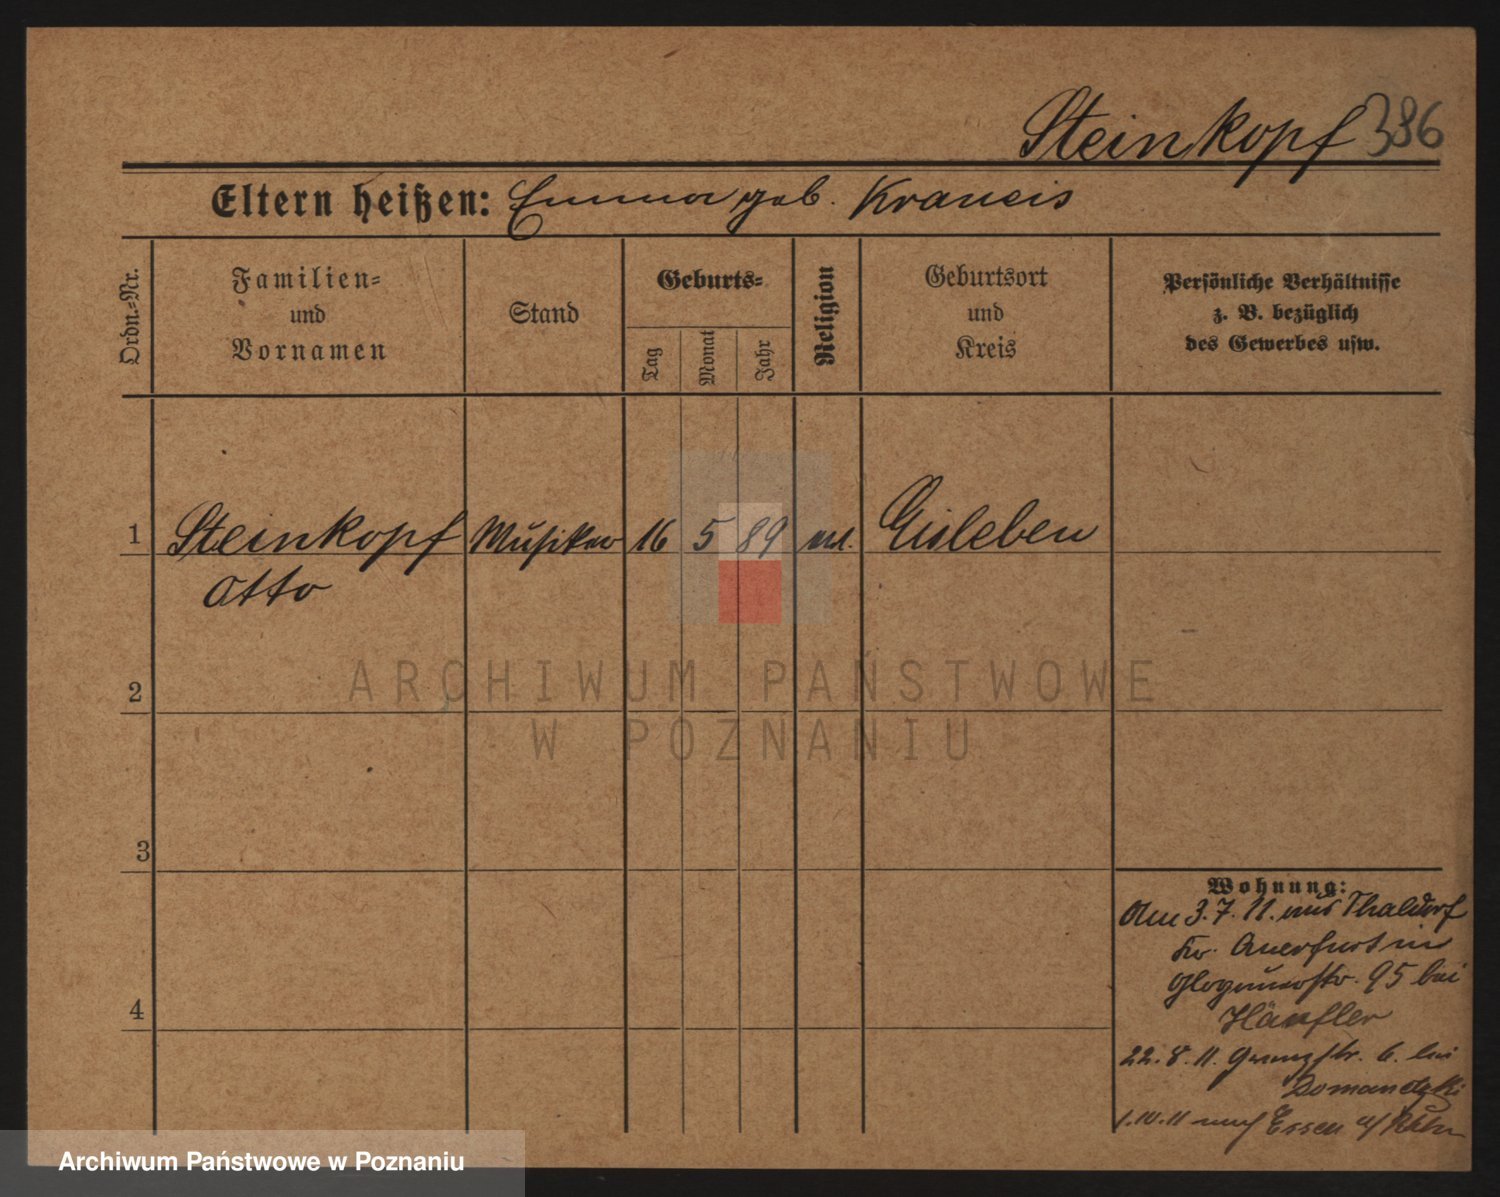 Steinkopf 386
Eltern heißen: Emma geb. Kraneis
Ordn.-Nr.
Familien=
und
Vornamen
Stand
Geburts=
Tag
Monat
Jahr
Religion
Geburtsort
und
Kreis
Persönliche Verhältnisse
z. B. bezüglich
des Gewerbes usw.
1 Steinkopf Musiker 16 5 89 evl. Eisleben
Otto
2
3
4
Wohnung:
Am 3.7.11. aus Thaldorf
Kr. Querfurt in
Glogauerstr. 95 bei
Häusler
22.8.11. Grenzstr. 6. bei
Domanetzki
1.10.11 nach Essen a/ Ruhr
ARCHIWUM PAŃSTWOWE
W POZNANIU
Archiwum Państwowe w Poznaniu